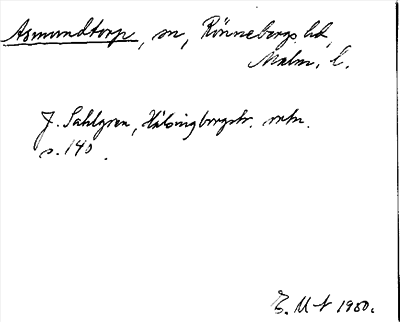 Asmundtorp, sn, Rönnebergs hd,
Malm. l.
J. Sahlgren, Hälsingborgstr. ortn.
s. 140.
E. M-N 1950.